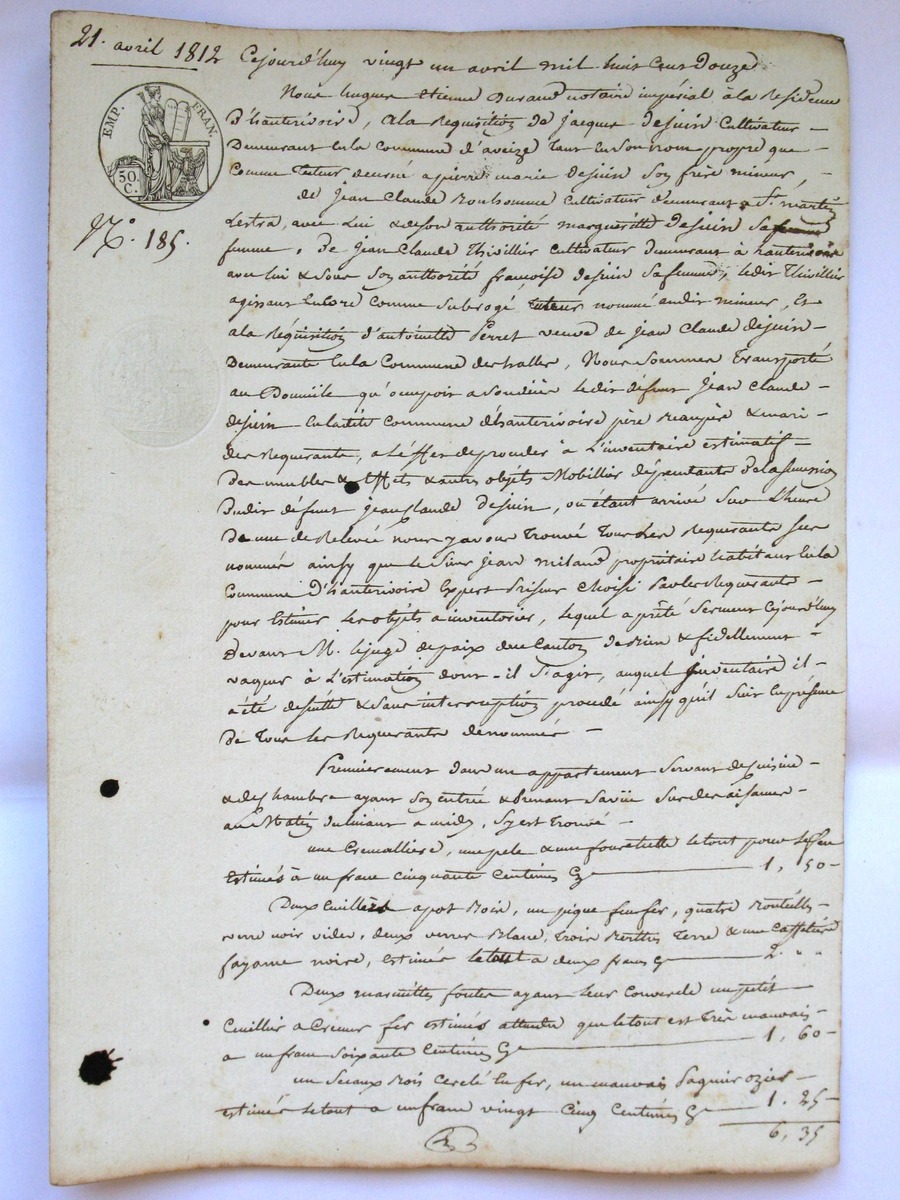 21. avril 1812
EMP. FRAN.
50. C.
N.º 185.
Cejourd'huy vingt un avril mil huit cent douze
Nous hugues Etienne Durand notaire impérial à la Residence
D'hauterivoire, à la Requisition de jacques dejuin Cultivateur
Demeurant en la commune d'aveize tant en son nom propre que
Comme Tuteur decerné a pierre marie dejuin son frère mineur,
de Jean Claude Bonhomme cultivateur demeurant à St. martin
Lestra, avec lui & de son authorité margueritte dejuin sa
femme, De Jean Claude Thivillier cultivateur demeurant à hauterivoire
avec lui & sous son authorité françoise dejuin sa femme, ledit Thivillier
agissant encore comme subrogé tuteur nommé audit mineur, Et
a la Réquisition d'antoinette Perret veuve de jean Claude dejuin
Demeurante en la Commune des halles, Nous Sommes Transporté
au Domicile qu'occupoit a son décès ledit défunt Jean Claude
dejuin en la dite Commune d'hauterivoire père & mari
des Requerants, a l'effet de proceder à L'inventaire estimatif
Des meubles & Effets & autres objets Mobilliers dépendants de la succession
Dudit défunt jean Claude dejuin, ou étant arrivé sur L'heure
De une de Relevée nous y avons Trouvé Tous Les Requerants sus
nommés ainsy que le Sieur Jean milan propriétaire habitant en la
Commune D'hauterivoire Expert Priseur choisi par les Requerants
pour Estimer les objets a inventorier, lequel a prêté Serment Cejourd'huy
Devant M. le juge de paix du Canton de bien & fidellement
vaquer à L'estimation dont il s'agit, auquel inventaire il
a été desuitte & sans interruption procedé ainsy qu'il suit en présence
De Tous les Requerants dénommés
Premierement dans un appartement servant de cuisine
& de chambre ayant son entrée & prenant sa vüe sur des aisances
au Matin au midy, s'y est Trouvé
une Cremallière, une pele & une fourchette le tout pour le feu
Estimés à un franc cinquante Centimes Cy 1, 50
Deux Cuillers a pot Bois, un pique feu fer, quatre Bouteilles
verre noir vides, deux verres Blanc, Trois Terre & une Caffetière
fayance noire, estimés le tout a deux francs Cy 2. " "
Deux marmittes fontes ayant leur Couvercle un petit
Cuillier a Ecremer fer estimés attendu que le tout est Très mauvais
a un franc soixante Centimes Cy 1, 60
un Seaux Bois cerclé en fer, un mauvais Paquin ozier
estimés le tout a un franc vingt Cinq Centimes Cy 1. 25
6, 35